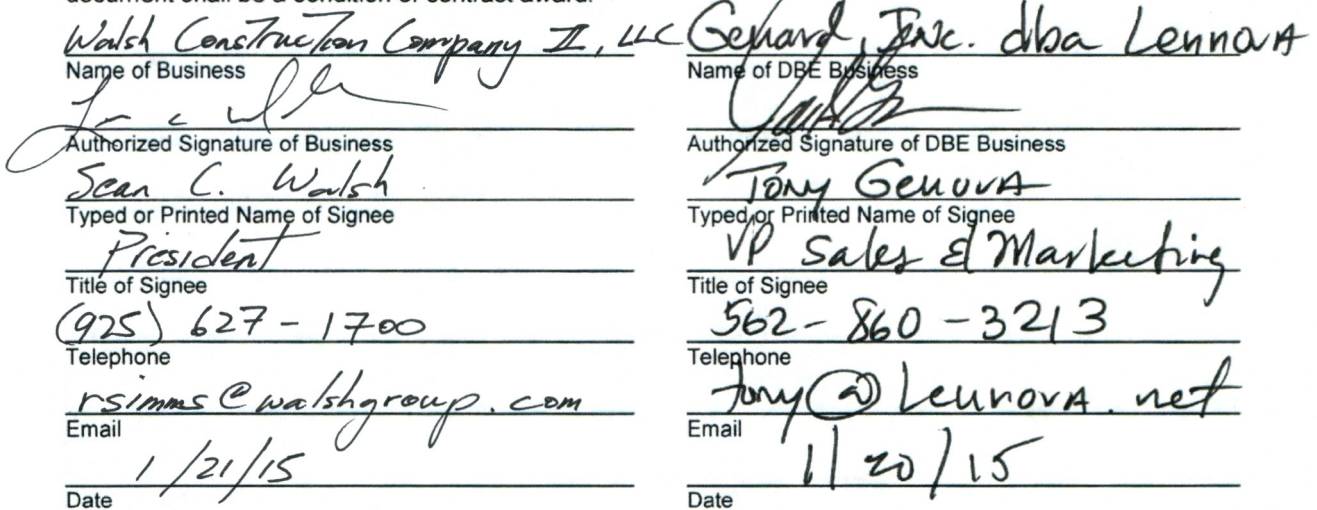 document shall be a condition of contract award.
Walsh Construction Company II, LLC
Name of Business
Authorized Signature of Business
Sean C. Walsh
Typed or Printed Name of Signee
President
Title of Signee
(925) 627-1700
Telephone
rsimms@walshgroup.com
Email
1/21/15
Date
Gehard, Inc. dba LennovA
Name of DBE Business
Authorized Signature of DBE Business
Tony GenovA
Typed or Printed Name of Signee
VP Sales & Marketing
Title of Signee
562-860-3213
Telephone
tony@LennovA.net
Email
1/20/15
Date